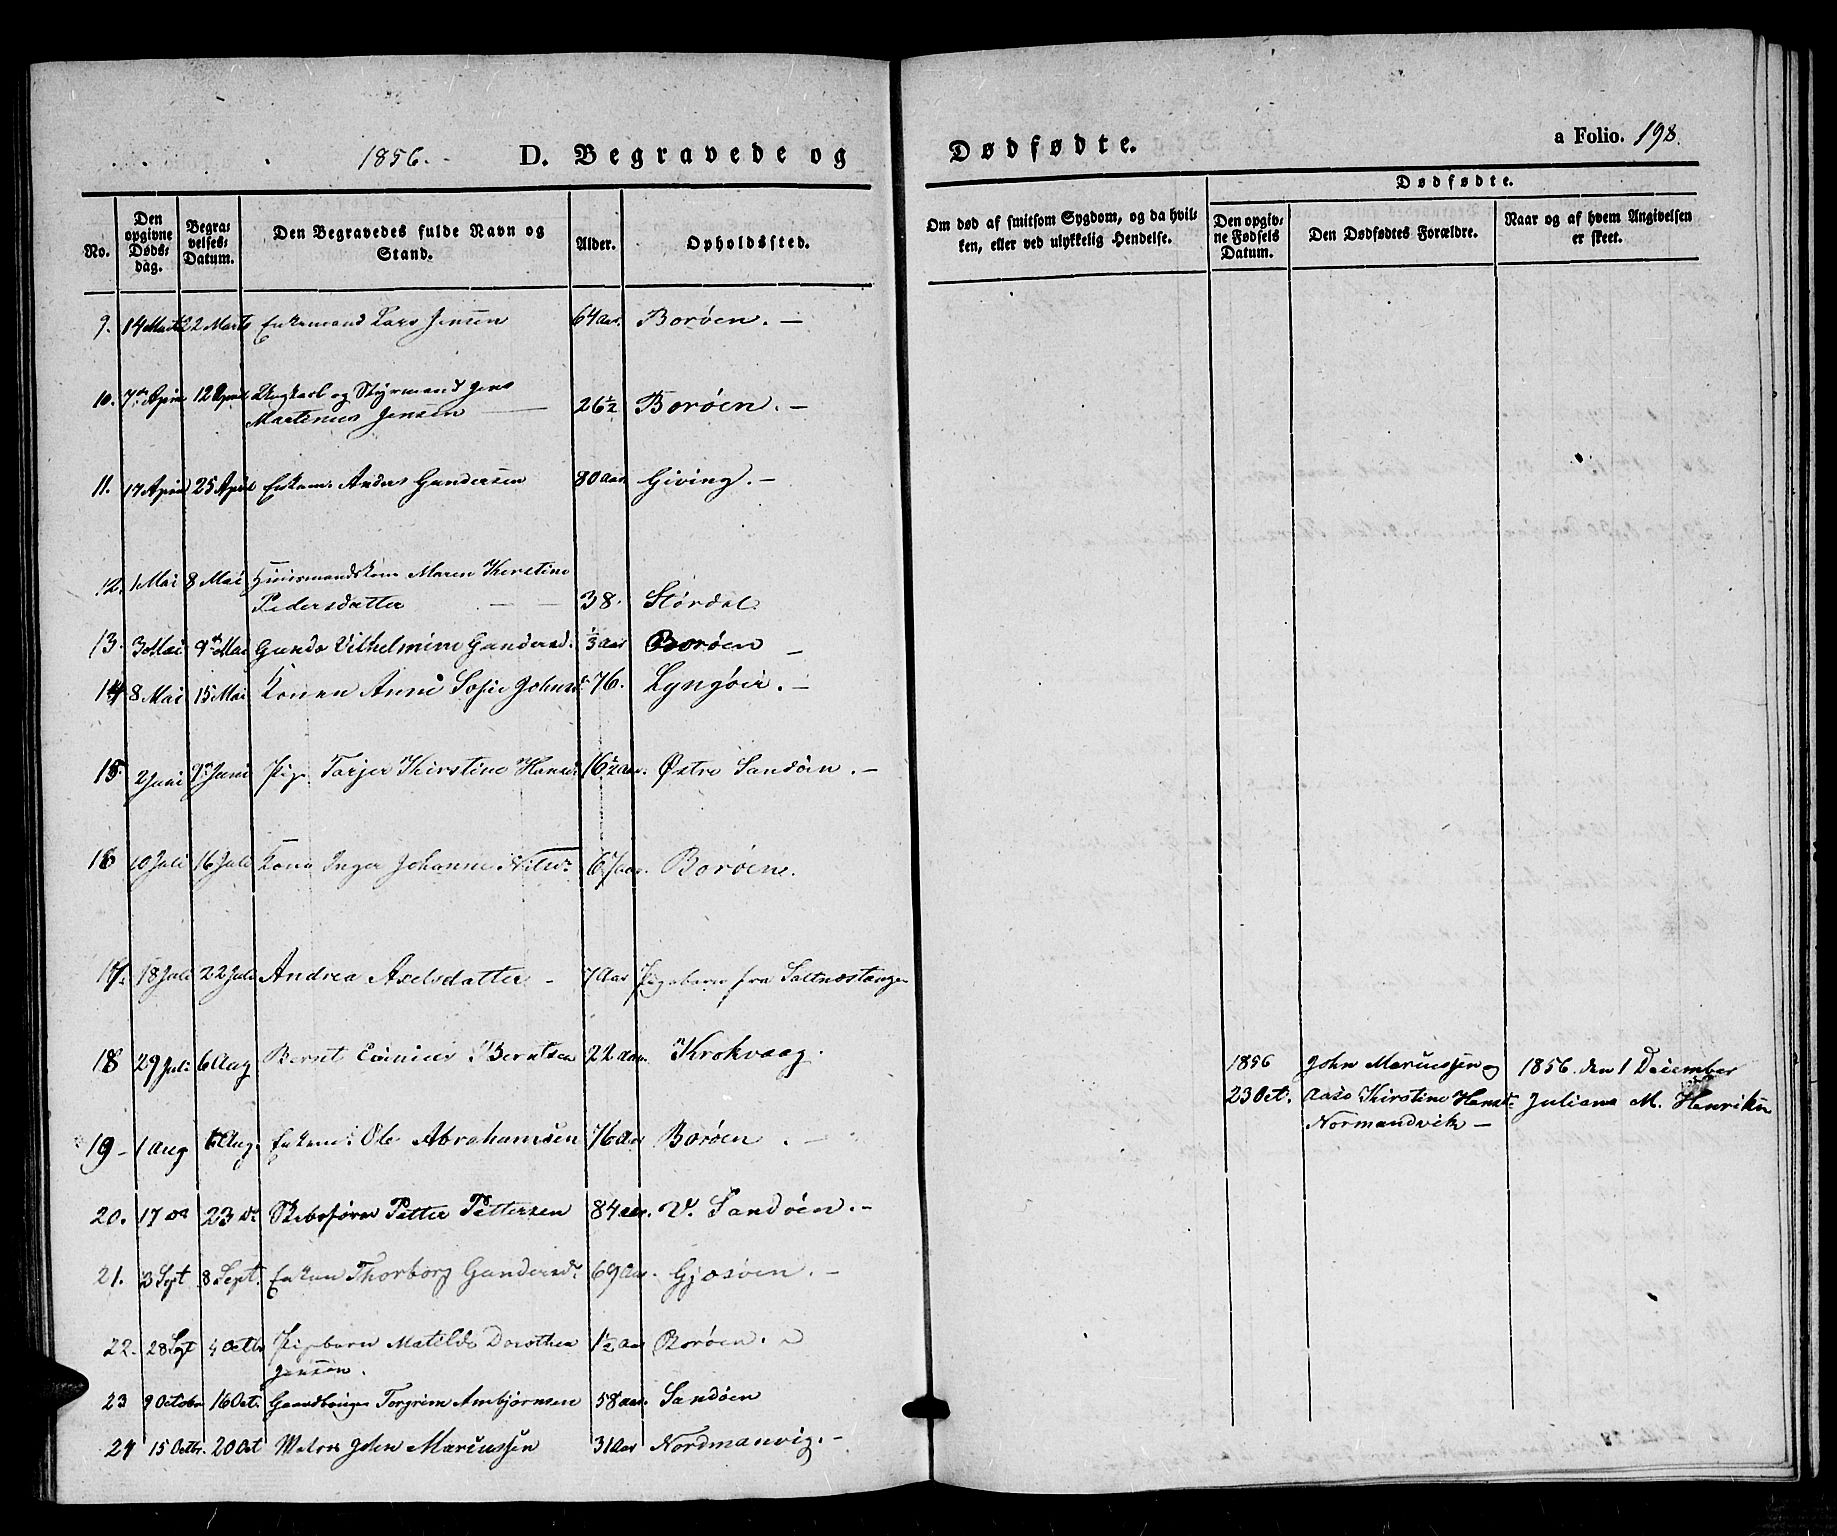 1856. D. Begravede og Dødfødte. a Folio. 198.
No. Den opgivne Dødsdag. Begravelses-Datum. Den Begravedes fulde Navn og Stand. Alder. Opholdssted.
Om død af smitsom Sygdom, og da hvilken, eller ved ulykkelig Hendelse.
Dødfødte.
Den opgivne Fødsels Datum. Den Dødfødtes Forældre. Naar og af hvem Angivelsen er skeet.
9. 14 Marts 22 Marts Enkemand Lars Jensen 64 Aar. Borøen. –
10. 7de April 12 April Ungkarl og Styrmand Jens
Martinius Jensen 26½ Borøen. –
11. 17 April 25 April Enkem: Anders Gundersen 80 Aar Giving. –
12. 1 Mai 8 Mai Huusmandskone Maren Kirstine
Pedersdatter 38. Størdal
13. 3 Mai 9de Mai Vilhelmine Gundersd. ⅓ Aar Borøen –
14 8 Mai 15 Mai Konen Anne Sofie Johnsd. 76. Lyngøer. –
15. 2 Juni 9de Juni Pige Torjer Kirstine Hansd. 16½ Aar. Østre Sandøen. –
16 10 Juli 16 Juli Kone Inger Johanne Nilsd. 67 Aar. Borøen.
17. 18 Juli 22 Juli Andrea Axelsdatter – 7 Aar Pigebarn fra Saltnæstangen
18 29 Juli 6 Aug Bernt Berntsen 22 Aar. Krokvaag.
19 – 1 Aug 6 Aug. Enkem: Ole Abrahamsen 76 Aar Borøen. –
20. 17 do 23 do Skibsfører Petter Pettersen 84 Aar. V. Sandøen. –
21. 3 Sept 8 Sept. Enken Thorborg Gundersd. 69 Aar. Gjæsøen. –
22. 28 Sept 4 Octbr Pigebarn Matilde Dorothea 1½ Aar Borøen.
Jensen.
23 9 Octobr 16 Oct. Gaardbruger Torgrim Ambjørnsen 58 Aar. Sandøen
24 15 Octbr. 20 Oct Matros John Mariussen 31 Aar Nordmanvig. –
1856 John Mariussen og 1856. den 1 December
23 Oct. Aase Kirstine Hansd. Juliane M. Henriksen
Normandvik –